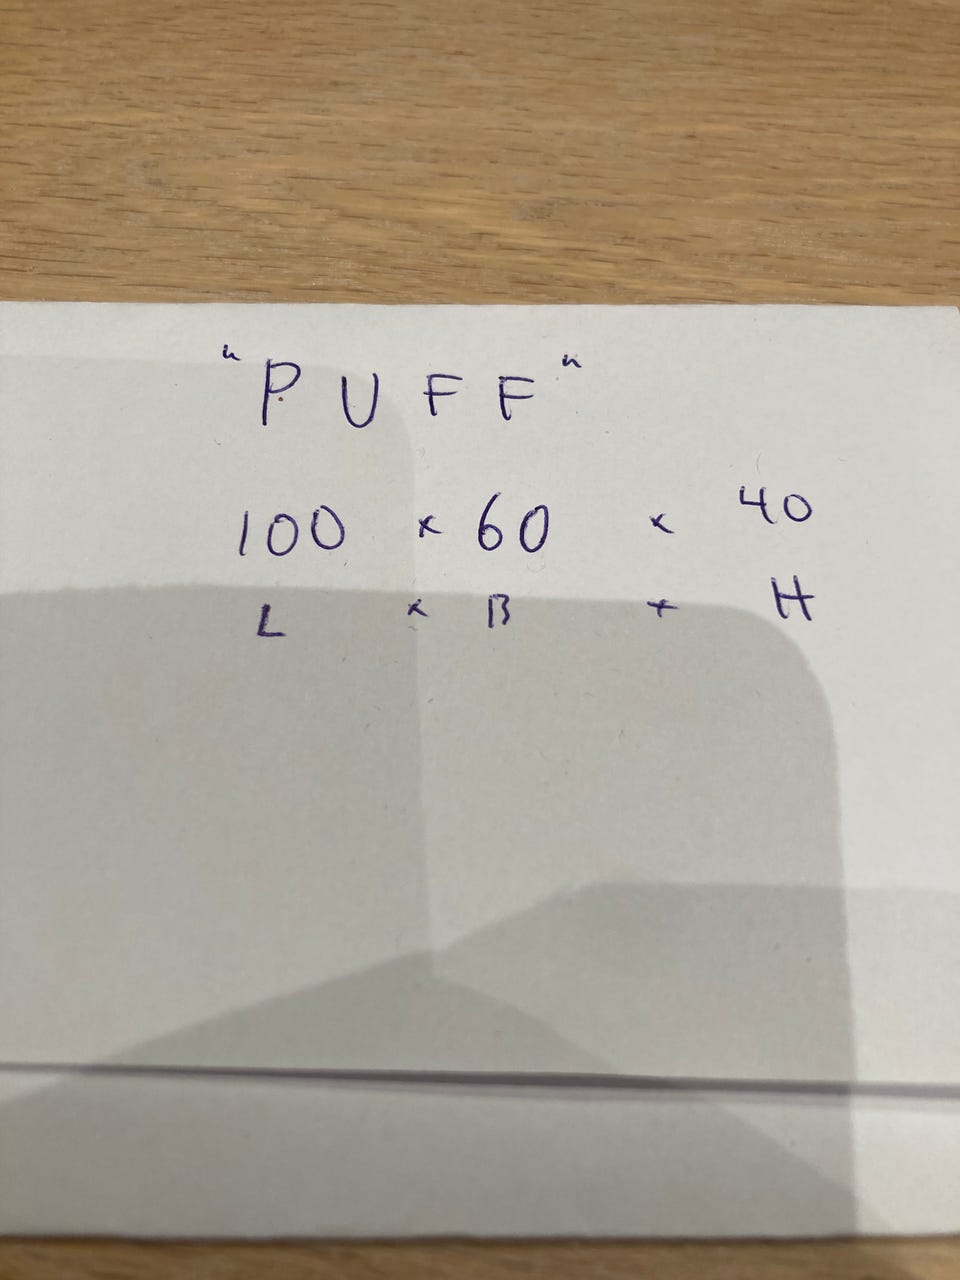 "PUFF"
100 x 60 x 40
L x B x H